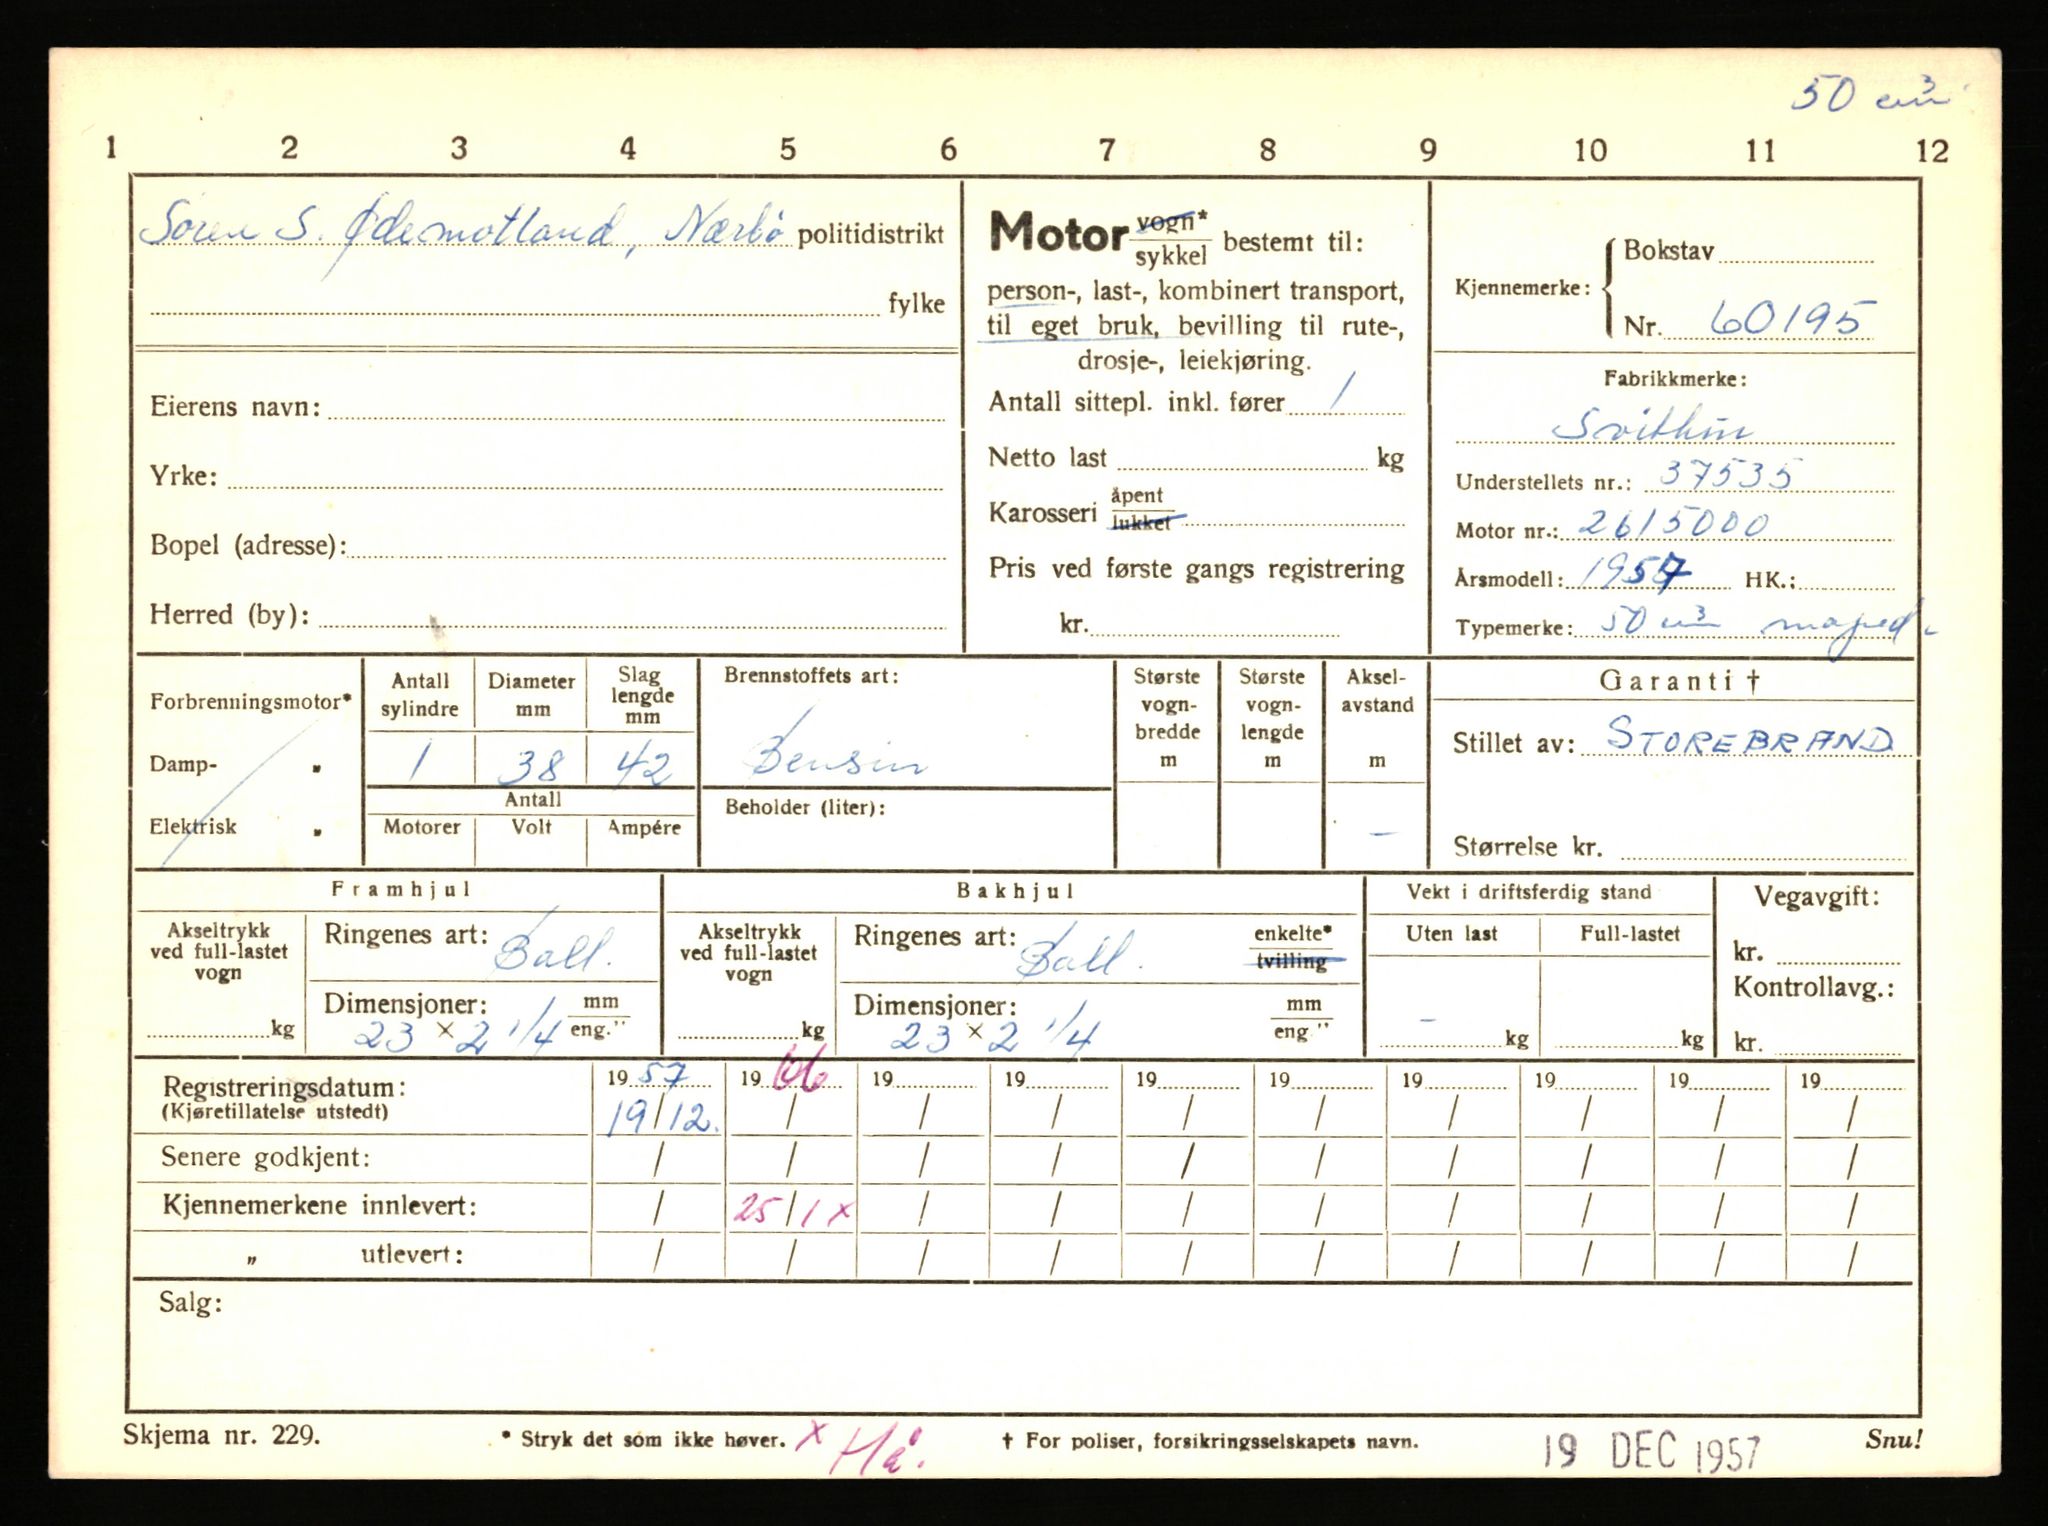 50 cm³
1 2 3 4 5 6 7 8 9 10 11 12
Søren S. Ødemotland, Nærbø politidistrikt
fylke
Eierens navn:
Yrke:
Bopel (adresse):
Herred (by):
Motor vogn* sykkel bestemt til:
person-, last-, kombinert transport,
til eget bruk, bevilling til rute-,
drosje-, leiekjøring.
Antall sittepl. inkl. fører 1
Netto last kg
Karosseri åpent lukket
Pris ved første gangs registrering
kr.
Kjennemerke: Bokstav
Nr. 60195
Fabrikkmerke:
Svithun
Understellets nr.: 37535
Motor nr.: 2615000
Årsmodell: 1957 HK.:
Typemerke: 50 cm³ moped.
Forbrenningsmotor*
Damp- „
Elektrisk „
Antall sylindre
1
Diameter mm
38
Slag lengde mm
42
Antall
Motorer Volt Ampére
Brennstoffets art:
Bensin
Beholder (liter):
Største vogn-bredde m
Største vogn-lengde m
Aksel-avstand m
-
Garanti †
Stillet av: STOREBRAND
Størrelse kr.
Framhjul
Akseltrykk ved full-lastet vogn
kg
Ringenes art: Ball.
Dimensjoner: mm eng."
23 x 2 1/4
Bakhjul
Akseltrykk ved full-lastet vogn
kg
Ringenes art: Ball. enkelte* tvilling
Dimensjoner: mm eng."
23 x 2 1/4
Vekt i driftsferdig stand
Uten last Full-lastet
- kg kg
Vegavgift:
kr.
Kontrollavg.:
kr.
Registreringsdatum: 19 57 19 66 19 19 19 19 19 19 19 19
(Kjøretillatelse utstedt) 19/12. / / / / / / / / /
Senere godkjent: / / / / / / / / / /
Kjennemerkene innlevert: / 25/1 x / / / / / / / /
„ utlevert: / / / / / / / / / /
Salg:
Skjema nr. 229. * Stryk det som ikke høver. x Hå. † For poliser, forsikringsselskapets navn. 19 DEC 1957 Snu!